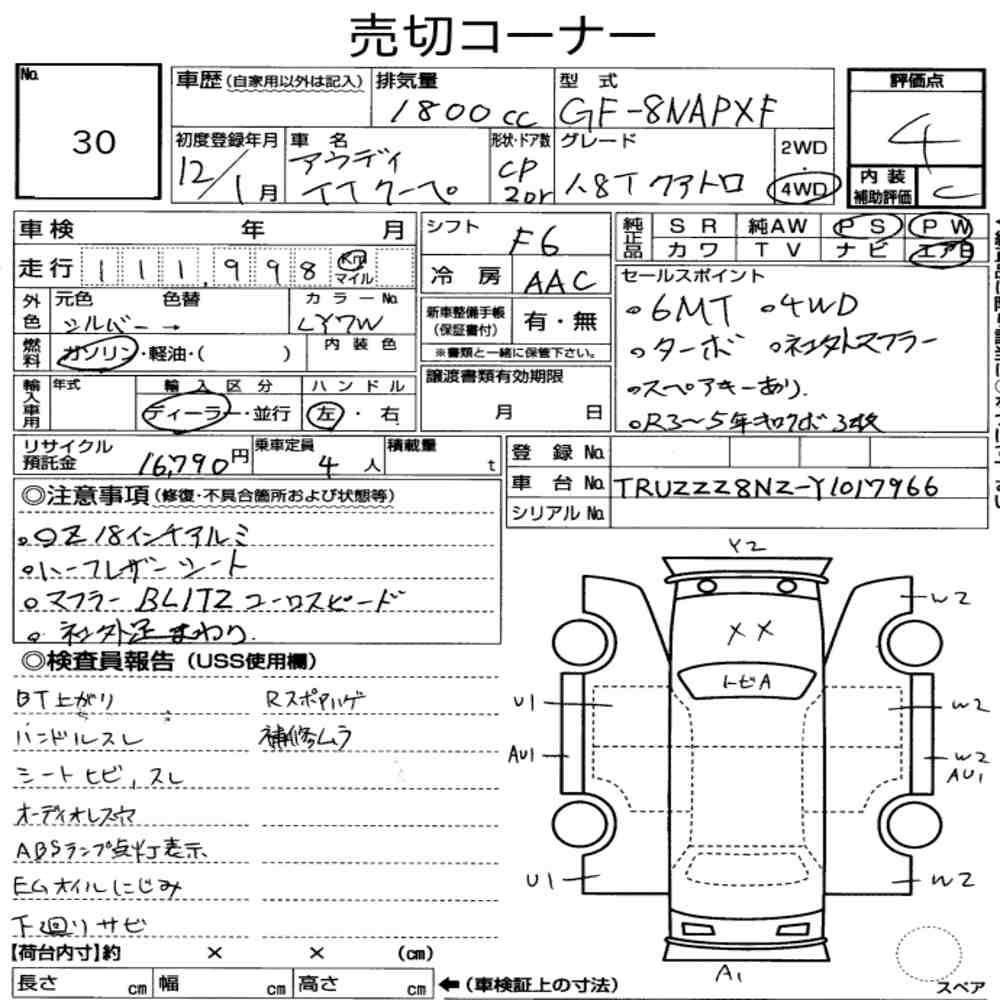 売切コーナー
No. 30
車歴(自家用以外は記入) 排気量 1800cc 型式 GF-8NAPXF
評価点 4
初度登録年月 12/1月 車名 アウディ TTクーペ 形状・ドア数 CP 2Dr グレード 1.8T クアトロ 2WD・4WD
内装補助評価 C
車検 年 月
走行 111,998 Km マイル
シフト F6
冷房 AAC
純正品 SR 純AW PS PW
カワ TV ナビ エアB
外色 元色 シルバー → 色替 カラーNo. LY7W
燃料 ガソリン・軽油・( ) 内装色
新車整備手帳(保証書付) 有・無
※書類と一緒に保管下さい。
輸入車用 年式 輸入区分 ディーラー・並行 ハンドル 左・右
譲渡書類有効期限 月 日
セールスポイント
。6MT 。4WD
。ターボ 。社外スフラー
。スペアキーあり.
。R3〜5年キロクボ3枚
リサイクル預託金 16,790円 乗車定員 4人 積載量 t
登録No.
車台No. TRUZZZ8NZ-Y1017966
シリアルNo.
◎注意事項(修復・不具合箇所および状態等)
。OZ 18インチアルミ
。ハーフレザーシート
。マフラー BLITZ ユーロスピード
。社外足まわり.
◎検査員報告(USS使用欄)
BT上がり Rスポアルゲ
ハンドルスレ 補修ムラ
シートヒビ,スレ
オーディオレス穴
ABSランプ点灯表示
EGオイルにじみ
下廻りサビ
Y2
W2
XX
トビA
U1
W2
AU1
W2
AU1
U1
W2
A1
スペア
【荷台内寸】約 × × (cm)
長さ cm 幅 cm 高さ cm ←(車検証上の寸法)